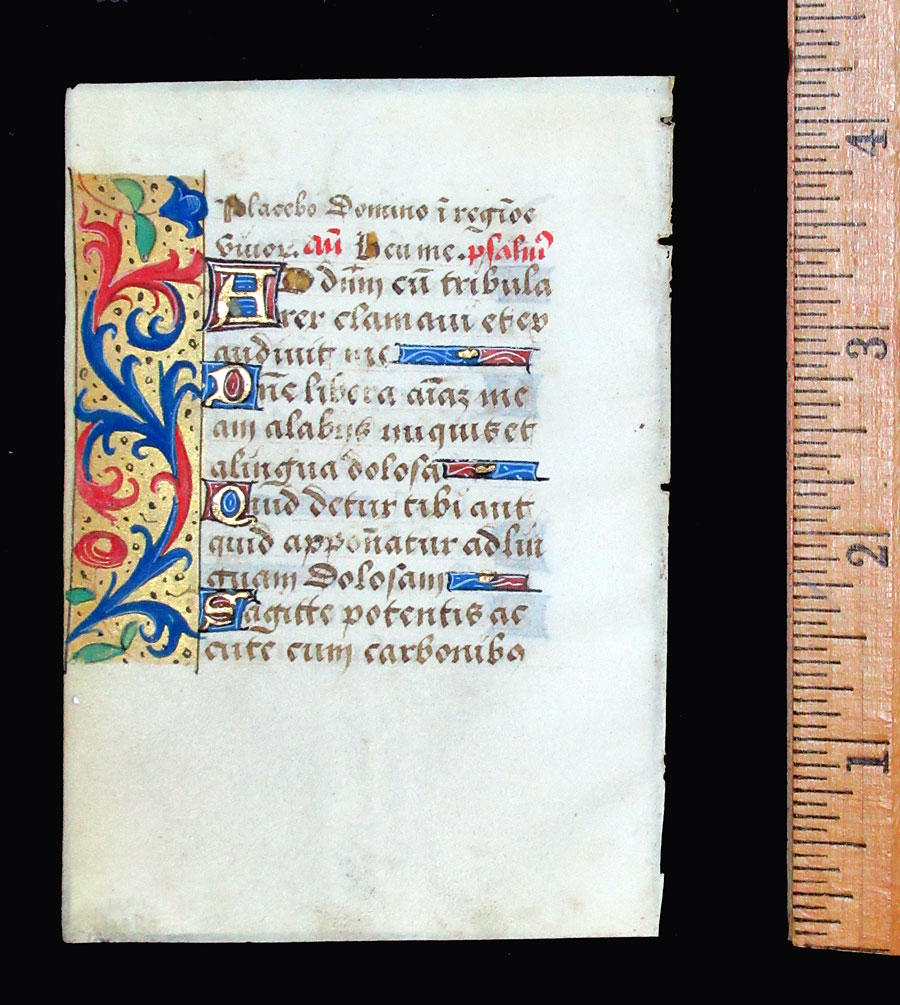 Placebo Domino ī regiōe
vivor. añ Heu me. psalmꝰ
AD dn̄m cū tribula
rer clamaui et ex
audiuit me
Dn̄e libera aīaz me
am alabijs iniquis et
alingua dolosa
Quid detur tibi aut
quid appon̄atur ad lin
guam Dolosam
Sagitte potentis ac
cute cum carbonibꝰ
4
3
2
1